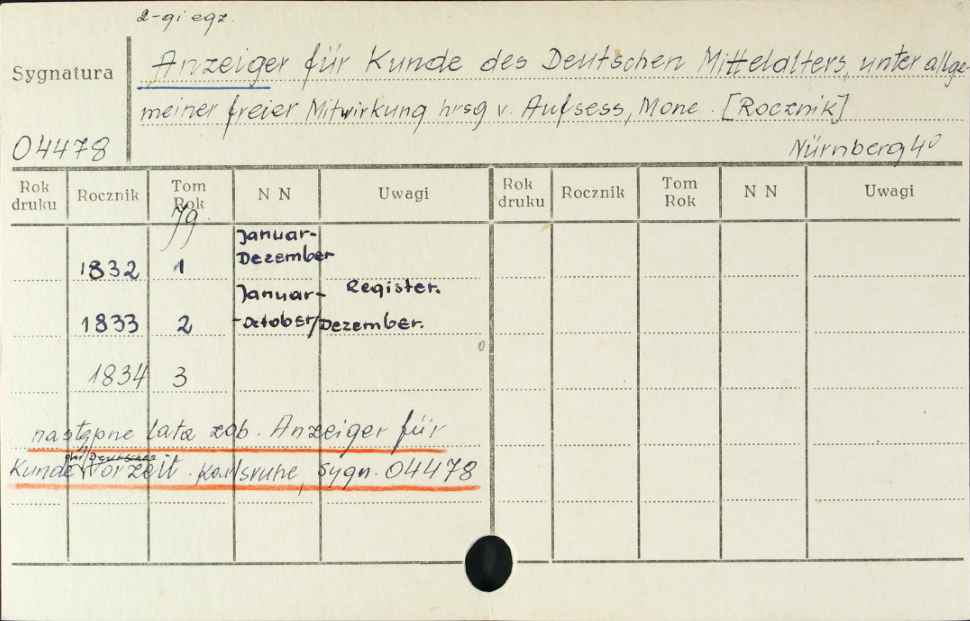 2-gi egz.
Sygnatura
Anzeiger für Kunde des Deutschen Mittelalters, unter allge-
meiner freier Mitwirkung hrsg v. Aufsess, Mone. [Rocznik]
04478
Nürnberg 4°
Rok druku Rocznik Tom Rok N N Uwagi Rok druku Rocznik Tom Rok N N Uwagi
Januar-
1832 1 Dezember
Januar- Register.
1833 2 -October/Dezember.
1834 3
następne lata zob. Anzeiger für
Kunde Vorzeit. Karlsruhe, Sygn. 04478